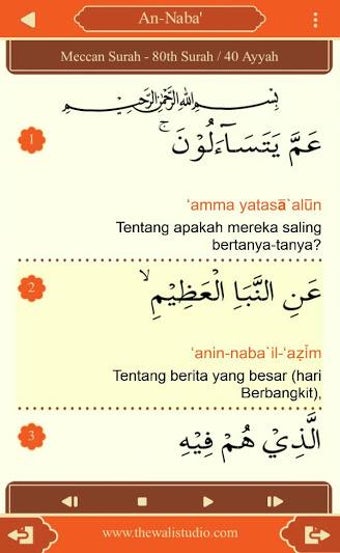 An-Naba'
Meccan Surah - 80th Surah / 40 Ayyah
بِسْمِ اللّٰهِ الرَّحْمٰنِ الرَّحِيْمِ
1
عَمَّ يَتَسَاۤءَلُوْنَۚ
‘amma yatasā`alūn
Tentang apakah mereka saling
bertanya-tanya?
2
عَنِ النَّبَاِ الْعَظِيْمِۙ
‘anin-naba`il-‘aẓīm
Tentang berita yang besar (hari
Berbangkit),
3
الَّذِيْ هُمْ فِيْهِ
www.thewalistudio.com